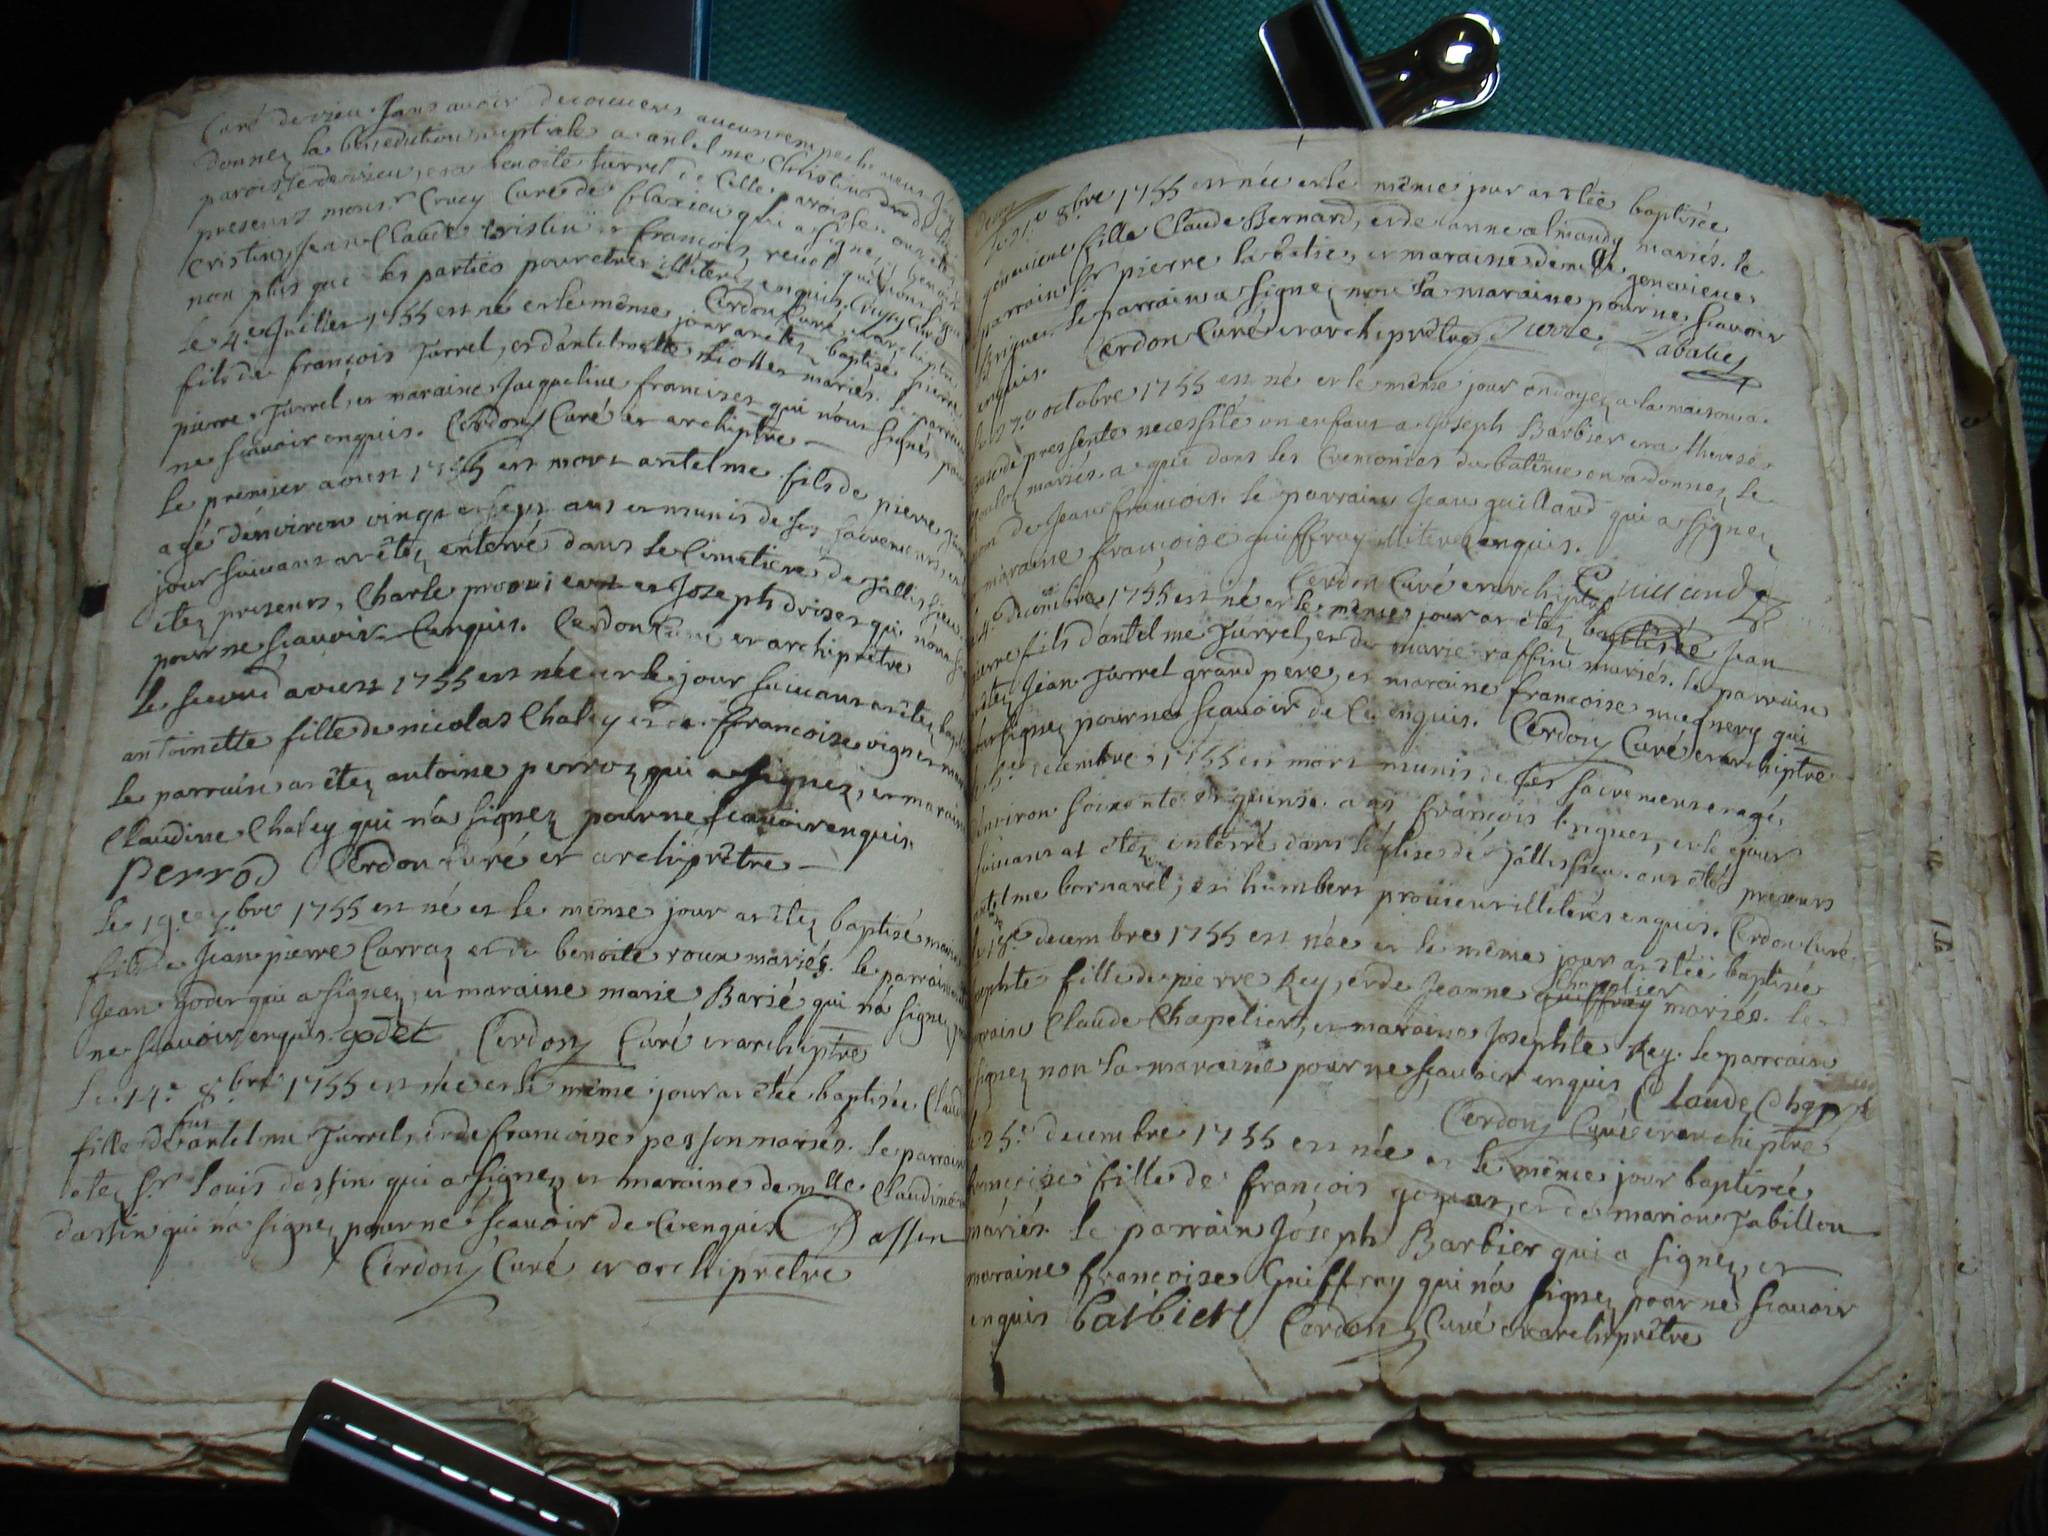 Curé de vieu sans avoir decouvers aucun empechemens
donnez la benediction nuptiale a antelme Christin
paroisse de vieu, et a benoite turrel de cette paroisse ont
presens mons.r Cruey Curé de flaxieu qui a signé, benoit
Cristin, Jean Claude Cristin et françois revel qui
non plus que les parties pour etre illiterez enquis. Cruey Curé
Cerdon Curé et archiptre
le 4.e Juillet 1755 est né et le même jour a etez baptisé pierre
fils de françois Turrel, et d'antelmette mariés. le parrain
pierre Turrel, et maraine Jacqueline francises qui n'ont signés pour
ne scavoir enquis. Cerdon Curé et archiptre
le premier aoust 1755 est mort antelme fils de pierre
agé denviron vingt et sept ans et munis de ses sacremens, et le
jour suivant a êtez enterré dans le Cimetiere de
êtez presens, Charle et Joseph qui nont
pour ne scavoir Enquis. Cerdon Curé et archiprêtre
le second aoust 1755 est née et le jour suivant a êtez
antoinette fille de nicolas Chaley et de francoise vignes
le parrain a êtez antoine perroz qui a signez, et maraine
Claudine Chaley qui n'a signez pour ne scavoir enquis.
Perrod Cerdon Curé et archiprêtre
le 19.e 7.bre 1755 est né et le même jour a êtez baptisé
fils de Jean pierre Carraz et de benoite roux mariés. le parrain
Jean goder qui a signez, et maraine marie Barié qui n'a signez
ne scavoir enquis. godet Cerdon Curé et archiptre
le 14.e 8.bre 1755 est née et le même jour a êtée baptisée Claud
fille d antelme Turrel, et de francoise pesson mariés. le parrain
etez S.r Louis dassin qui a signez et maraine demlle Claudine
dassin qui n'a signez pour ne scavoir de Ce enquis Dassin
Cerdon Curé et archiprêtre
8.bre 1755 est née et le même jour a êtée baptisée
genevieve fille Claude Bernard, et de anne almandy mariés. le
parrain S.r pierre la batie, et maraine demlle genevieve
Brigues. le parrain a signez, non la maraine pour ne scavoir
enquis. Cerdon Curé et archiprêtre Pierre Labaties
octobre 1755 est né et le même jour ondoyez a la maison a
cause de pressente necessité un enfant a Joseph Barbier et a therese
mariés. a qui dans les Ceremonies du batême on a donnez le
nom de Jean francois. le parrain Jean guilland qui a signez
maraine françoise guiffray illiterez enquis.
Cerdon Curé et archiptre Guilland
4.e decembre 1755 est né et le même jour a êtez baptisée Jean
pierre fils d'antelme Turrel, et de marie raffin mariés. le parrain
êtez Jean Turrel grand pere, et maraine francoise mugnery qui
nont signez pour ne scavoir de Ce enquis. Cerdon Curé et archiptre
decembre 1755 est mort munis de ses sacremens et agé
denviron soixante et quinse ans françois brigues, et le jour
suivant at êtez enterré dans l'église de ont étés presens
antelme bornarel, et humbert prouieur illiterés enquis. Cerdon Curé
le 18.e decembre 1755 est née et le même jour a etée baptisée
Josephte fille de pierre Rey, et de Jeanne Chapelier guiffray mariés. le
parrain Claude Chapelier, et maraine Josephte Rey. le parrain
signez non la maraine pour ne scavoir enquis Claude Chap
Cerdon Curé et archiptre
25.e decembre 1755 est née et le même jour baptisée
françoise fille de françois gomat, et de marion Jabillou
mariés. le parrain Joseph Barbier qui a signez, et
maraine françoise Guiffray qui n'a signez pour ne scavoir
enquis barbier Cerdon Curé et archiprêtre